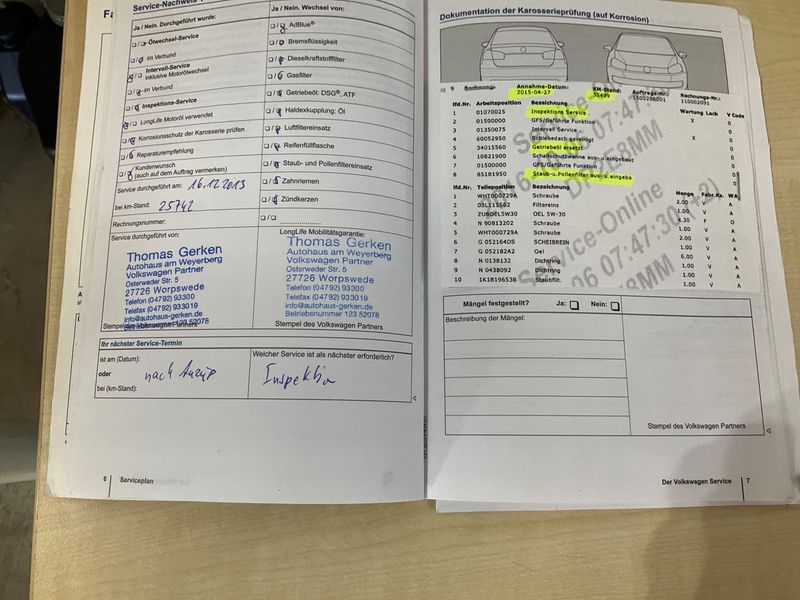 Service-Nachweis
Ja / Nein. Durchgeführt wurde:
Ölwechsel-Service
im Verbund
Intervall-Service
inklusive Motorölwechsel
im Verbund
Inspektions-Service
LongLife Motoröl verwendet
Korrosionsschutz der Karosserie prüfen
Reparaturempfehlung
Kundenwunsch
(auch auf dem Auftrag vermerken)
Service durchgeführt am: 16.12.2013
bei km-Stand: 25742
Rechnungsnummer:
Service durchgeführt von:
Thomas Gerken
Autohaus am Weyerberg
Volkswagen Partner
Osterweder Str. 5
27726 Worpswede
Telefon (04792) 93300
Telefax (04792) 933019
info@autohaus-gerken.de
Betriebsnummer 123 52078
Stempel des Volkswagen Partners
Ja / Nein. Wechsel von:
AdBlue®
Bremsflüssigkeit
Dieselkraftstofffilter
Gasfilter
Getriebeöl: DSG®, ATF
Haldexkupplung: Öl
Luftfiltereinsatz
Reifenfüllflasche
Staub- und Pollenfiltereinsatz
Zahnriemen
Zündkerzen
LongLife Mobilitätsgarantie:
Thomas Gerken
Autohaus am Weyerberg
Volkswagen Partner
Osterweder Str. 5
27726 Worpswede
Telefon (04792) 93300
Telefax (04792) 933019
info@autohaus-gerken.de
Betriebsnummer 123 52078
Stempel des Volkswagen Partners
Ihr nächster Service-Termin
ist am (Datum):
oder nach Anzeige
bei (km-Stand):
Welcher Service ist als nächster erforderlich?
Inspektion
6 Serviceplan
Dokumentation der Karosserieprüfung (auf Korrosion)
9 Rechnung: Annahme-Datum: KM-Stand: Auftrags-Nr.: Rechnungs-Nr.:
2015-04-27 55499 1500286001 110002091
lfd.Nr. Arbeitsposition Bezeichnung Wartung Lack V Code
1 01070025 Inspektions Service X 0
2 01500000 GFS/Geführte Funktion 0
3 01350075 Intervall Service 0
4 60052950 Schiebedach gereinigt X 0
5 34015560 Getriebeöl ersetzt 0
6 10821900 Schallschutzwanne aus- u.eingebaut 0
7 01500000 GFS/Geführte Funktion 0
8 85181950 Staub-u.Pollenfilter aus- u.eingeba 0
lfd.Nr. Teileposition Bezeichnung Menge Fabr.Kz. W A
1 WHT000729A Schraube 2.00 V A
2 03L115562 Filtereins 1.00 V A
3 ZUBOEL5W30 OEL 5W-30 4.30 V A
4 N 90813202 Schraube 1.00 V A
5 WHT000729A Schraube 1.00 V A
6 G 052164DS SCHEIBREIN 2.00 V A
7 G 052182A2 Oel 6.00 V A
8 N 0138132 Dichtring 1.00 V A
9 N 0438092 Dichtring 1.00 V A
10 1K1819653B Staubfilt. 1.00 V A
Service-Online
Mängel festgestellt? Ja: Nein:
Beschreibung der Mängel:
Stempel des Volkswagen Partners
Der Volkswagen Service 7